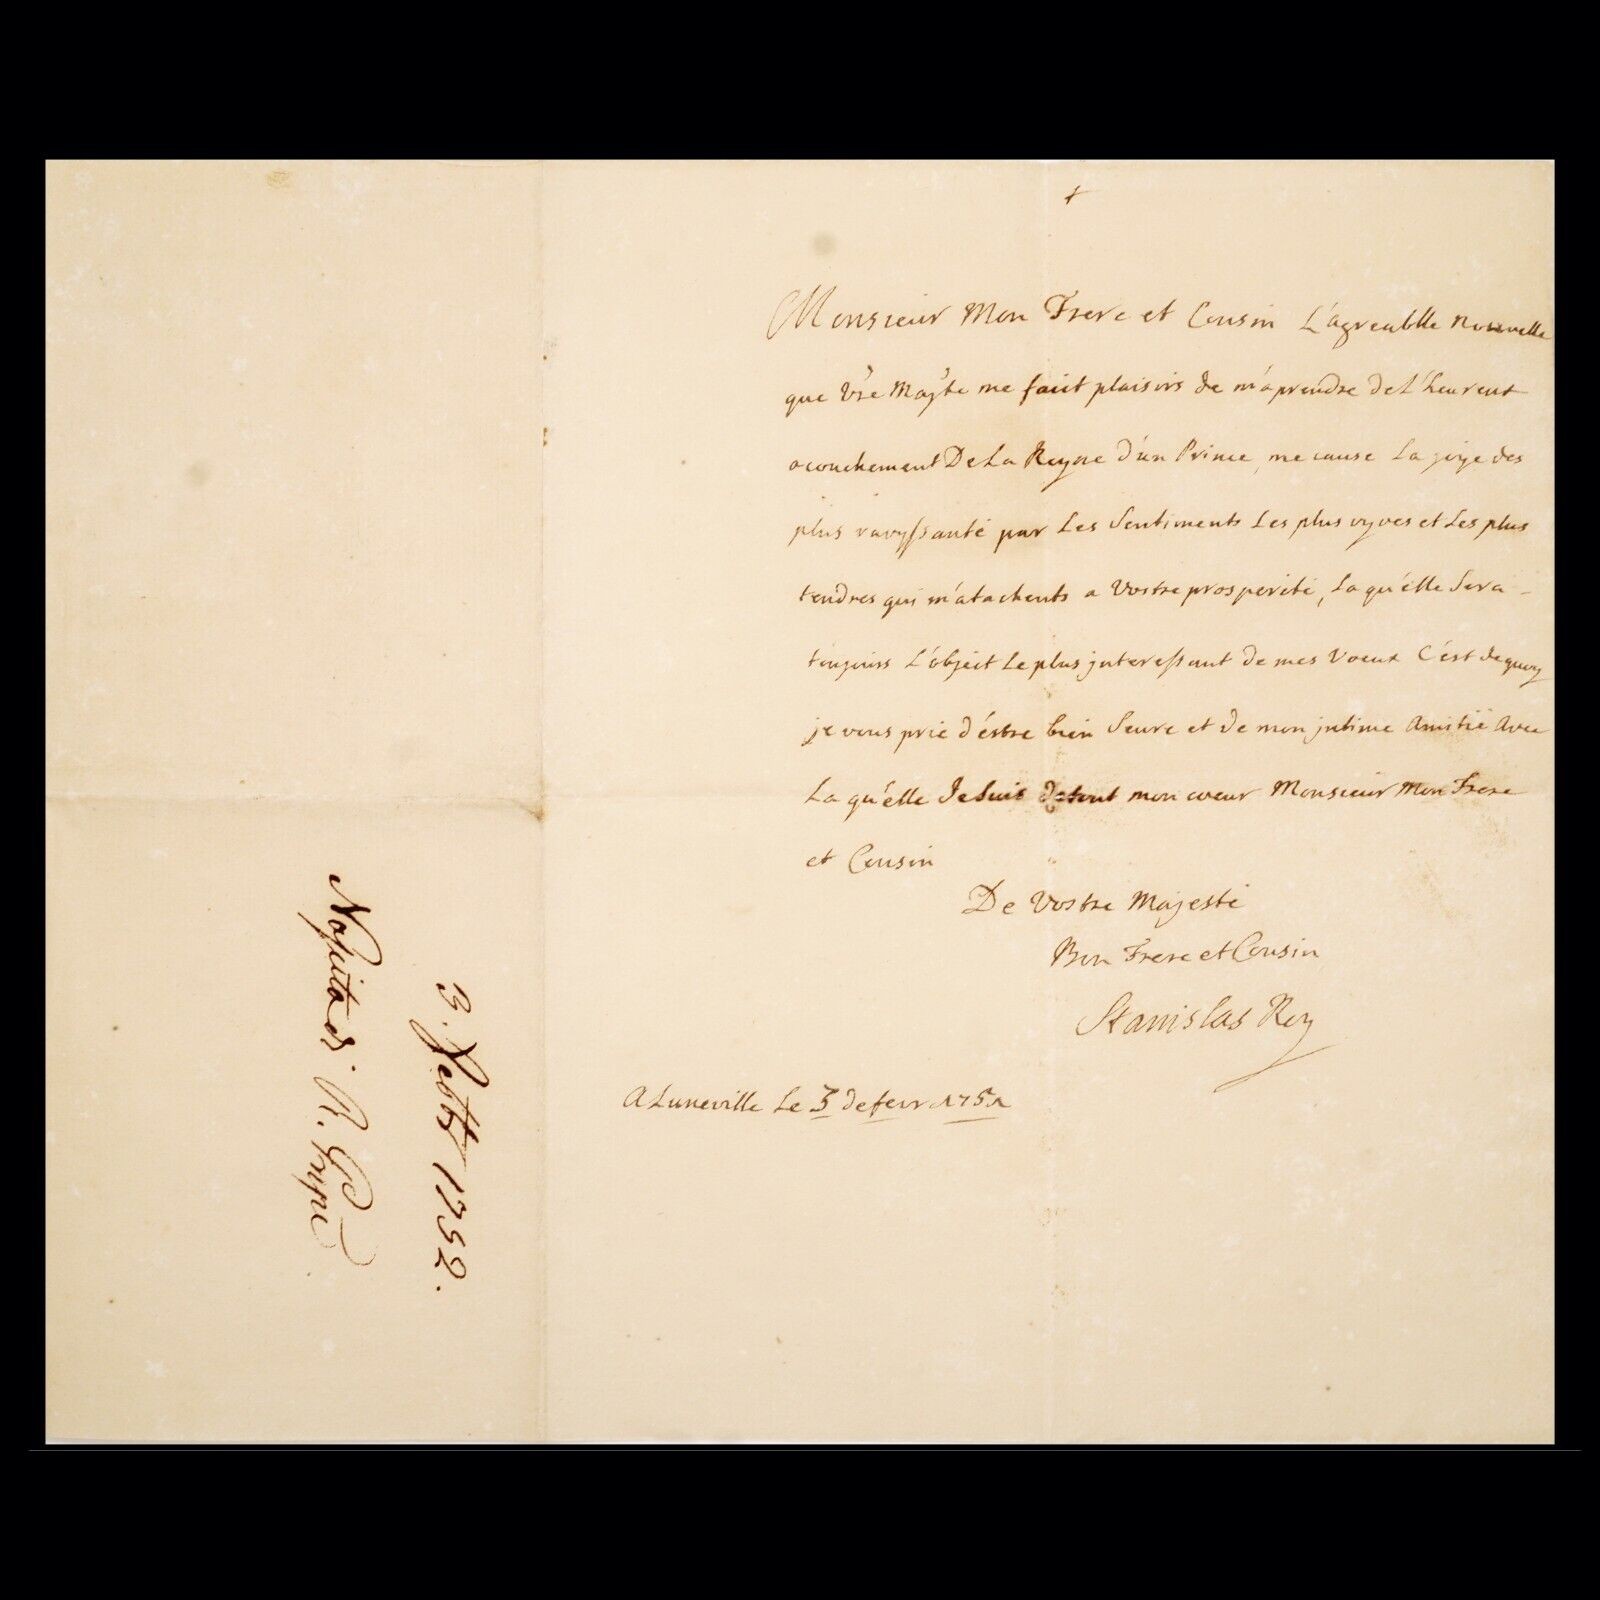 Monsieur Mon Frere et Cousin L'agreablle Nouvelle
que Vre Majte me faict plaisirs de m'aprendre de L'heureux
acouchement De La Reyne d'un Prince, me cause La joye des
plus ravyssante par Les Sentiments Les plus vyves et Les plus
tendres qui m'atachents a Vostre prosperité, La qu'elle Sera
toujours L'object Le plus jnteressant de mes Voeux C'est de quoy
je vous prie d'éstre bien Seure et de mon jntime Amitié Avec
La qu'elle Je Suis de tout mon coeur Monsieur Mon Frere
et Cousin
De Vostre Majesté
Bon Frere et Cousin
Stanislas Roy
A Luneville Le 3 de fevr 1752
3. 1752.
Nascita di R.